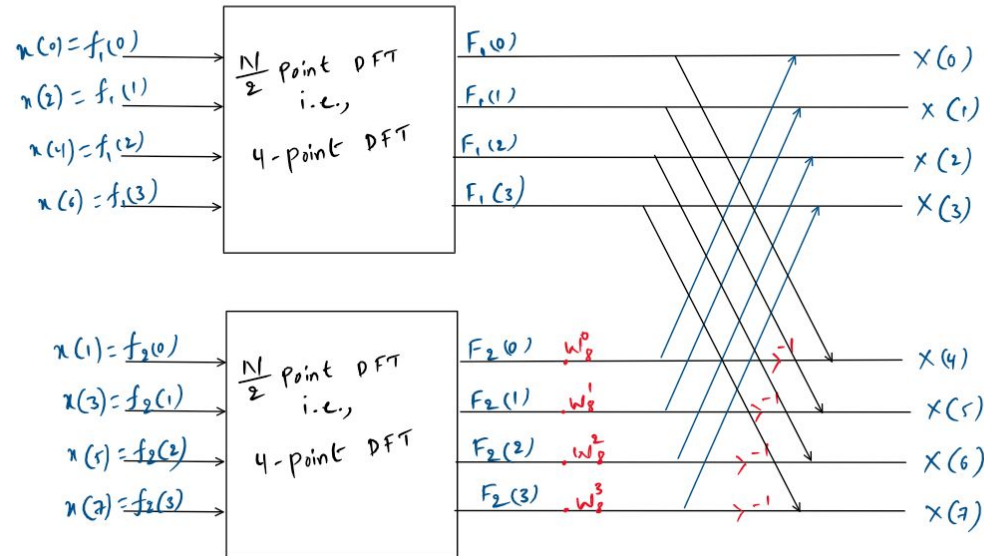 x(0)=f₁(0)
x(2)=f₁(1)
x(4)=f₁(2)
x(6)=f₁(3)
N/2 Point DFT
i.e.,
4-point DFT
F₁(0)
F₁(1)
F₁(2)
F₁(3)
X(0)
X(1)
X(2)
X(3)
x(1)=f₂(0)
x(3)=f₂(1)
x(5)=f₂(2)
x(7)=f₂(3)
N/2 Point DFT
i.e.,
4-point DFT
F₂(0) W₈⁰ -1 X(4)
F₂(1) W₈¹ -1 X(5)
F₂(2) W₈² -1 X(6)
F₂(3) W₈³ -1 X(7)